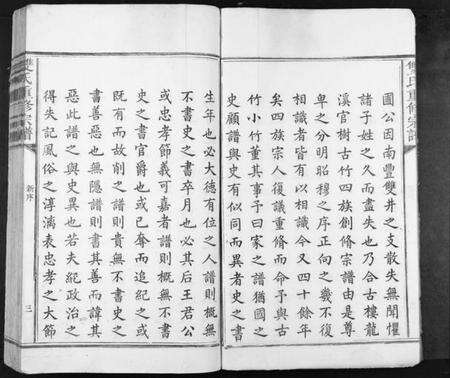 雙氏重修宗譜
國公因南豐雙井之支散失無聞懼
諸子姓之久而盡失也乃合古樓龍
溪官樹古竹四族創修宗譜由是尊
卑之分明昭穆之序正向之幾不復
相識者皆有以相識今又四十餘年
矣四族宗人復議重脩而命予與古
竹小竹董其事予曰家之譜猶國之
史顧譜與史有似同而異者史之書
生年也必大德有位之人譜則概無
不書史之書卒月也必其后王君公
或忠孝節義可嘉者譜則概無不書
史之書官爵也或已奪而追紀之或
既有而故削之譜則貴無不書史之
書善惡也無隱譜則書其善而諱其
惡此譜之與史異也若夫紀政治之
得失記風俗之淳漓表忠孝之大節
雙氏重修宗譜
新序
三